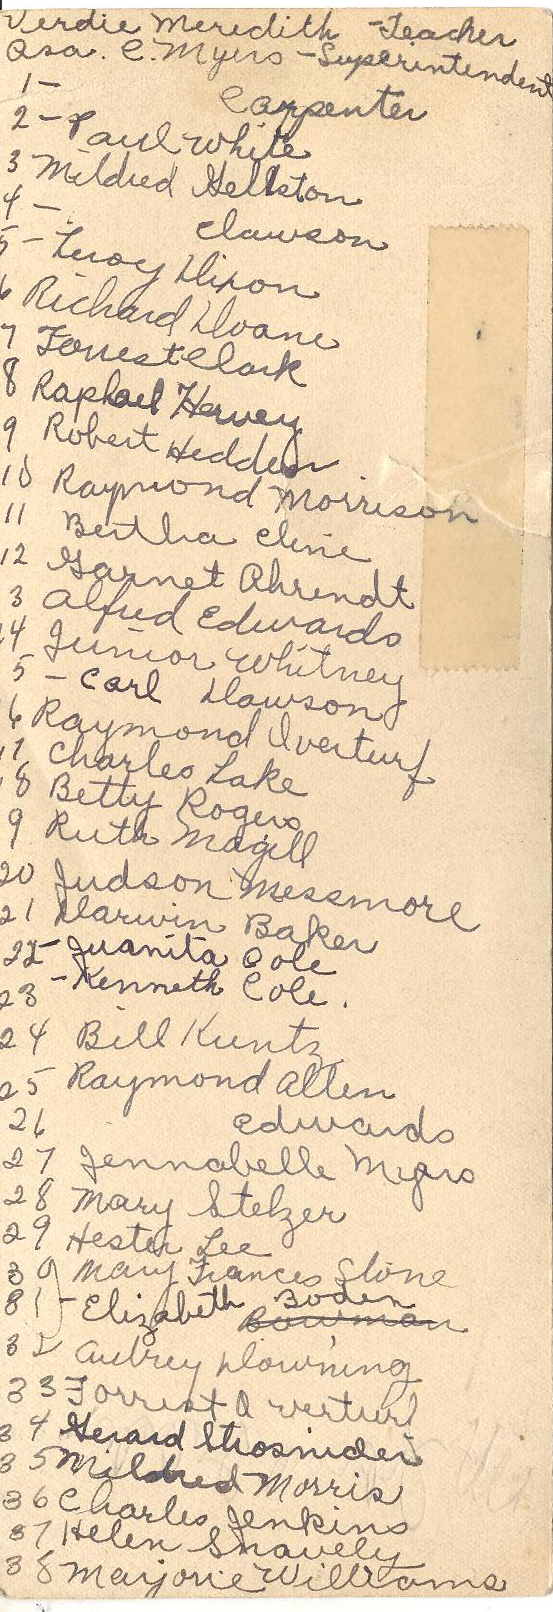 Verdie Meredith - Teacher
Asa. C. Myers - Superintendent
1 - Carpenter
2 - Paul White
3 Mildred Gellston
4 - Clawson
5 - Leroy Dixon
6 Richard Doane
7 Forrest Clark
8 Raphael Harvey
9 Robert Hedden
10 Raymond Morrison
11 Bertha Cline
12 Garnet Ahrendt
3 Alfred Edwards
14 Junior Whitney
5 - Carl Dawson
6 Raymond Overturf
17 Charles Lake
18 Betty Rogers
9 Ruth Magill
20 Judson Messmore
21 Darwin Baker
22 - Juanita Cole
23 - Kenneth Cole.
24 Bill Kuntz
25 Raymond Allen
26 Edwards
27 Jennabelle Myers
28 Mary Stelzer
29 Hester Lee
30 Mary Frances Slone
31 - Elizabeth Boden Bowman
32 Aubrey Downing
33 Forrest Overturf
34 Gerard Strosnider
35 Mildred Morris
36 Charles Jenkins
37 Helen Snavely
38 Marjorie Williams